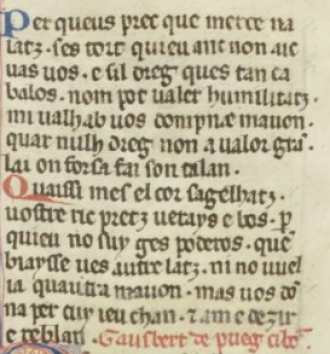 Per queus prec que merce na
iatz · ses tort quieu anc non aic
uas uos · e sil dreg ques tan ca
balos · nom pot ualer humilitatz ·
mi ualhab uos compnæ mauon ·
quar nulh dreg non a ualor gra͂ ·
lai on forsa fai son talan ·
Quaissi mes el cor sagelhatz ·
uostre ric pretz uerays e bos · p
quieu no suy ges poderos · que͂
biaysse ues autre latz · ni no uuel
ia quautra mauon · mas uos do͂
na per cuy ieu chan · ⁊ am e dezir
e reblan · Gausbert de pueg cibot ·